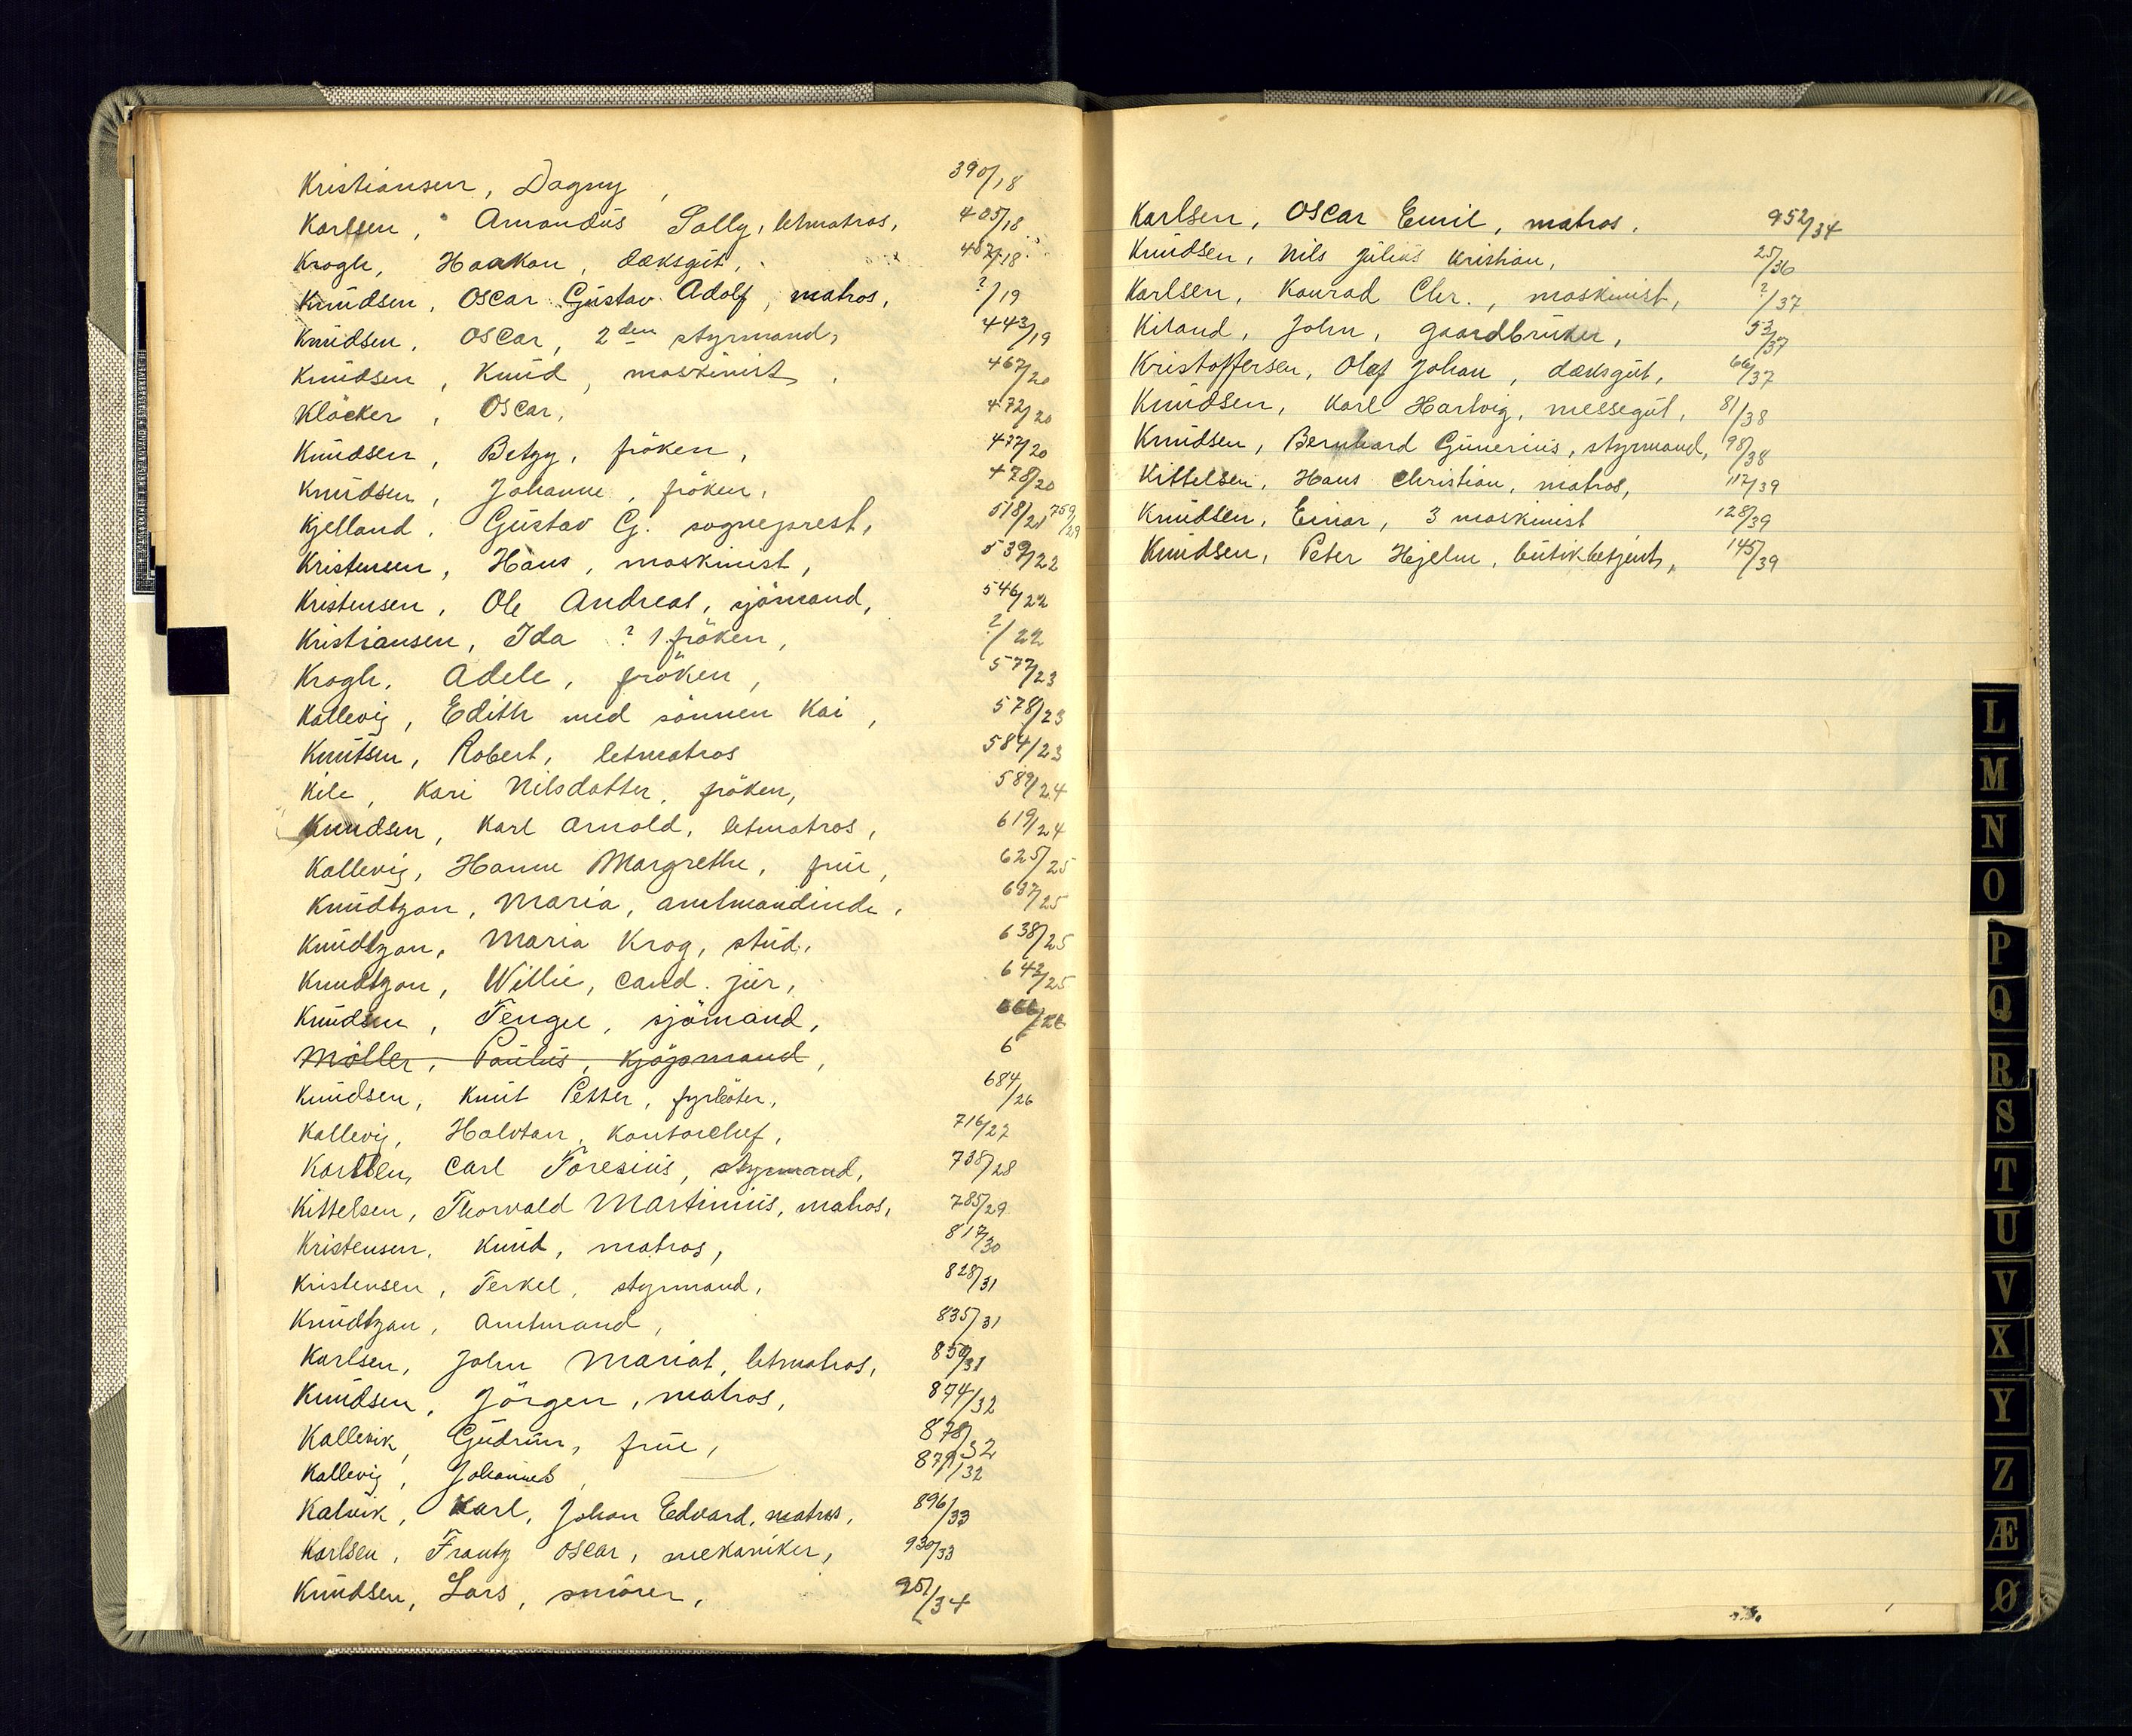 Kristiansen, Dagny, 390/18
Karlsen, Amandus Solly, letmatros, 405/18
Krogh, Haakon, dæksgut, 407/18
Knudsen, Oscar Gustav Adolf, matros, ?/19
Knudsen, Oscar, 2den styrmand, 443/19
Knudsen, Knud, maskinist, 467/20
Klöcker, Oscar, 472/20
Knudsen, Betzy, fröken, 477/20
Knudsen, Johanne, fröken, 478/20
Kjelland, Gustav G. sogneprest, 518/21 759/29
Kristensen, Hans, maskinist, 539/22
Kristensen, Ole Andreas, sjömand, 546/22
Kristiansen, Ida ? 1 fröken, ?/22
Krogh, Adele, fröken, 577/23
Kallevig, Edith med sönnen Kai, 578/23
Knutsen, Robert, letmatros 584/23
Kile, Kari Nilsdatter, fröken, 589/24
Knudsen, Karl Arnold, letmatros, 619/24
Kallevig, Hanne Margrethe, frue, 625/25
Knudtzon, Maria, amtmandinde, 637/25
Knudtzon, Maria Krog, stud., 638/25
Knudtzon, Willie, cand. jur, 643/25
Knudsen, Tengel, sjömand, 666/26
Möller, Paulus, kjöpmand, 6
Knudsen, Knut Petter, fyrböter, 684/26
Kallevig, Halvtan, Kontorchef, 716/27
Karlsen, Carl Toresius, styrmand, 738/28
Kittelsen, Thorvald Martinius, matros, 785/29
Kristensen, Knud, matros, 817/30
Kristensen, Terkel, styrmand, 828/31
Knudtzon, amtmand, 835/31
Karlsen, John Mariat, letmatros, 859/31
Knudsen, Jörgen, matros, 874/32
Kallevik, Gudrun, frue, 878/32
Kallevig, Johannes, — 879/32
Kalvik, Karl, Johan Edvard, matros, 896/33
Karlsen, Frantz Oscar, mekaniker, 930/33
Knudsen, Lars, smörer, 951/34
Karlsen, Oscar Emil, matros. 952/34
Knudsen, Nils Julius Kristian, 25/36
Karlsen, Konrad Chr., maskinist, ?/37
Kiland, John, gaardbruker, 53/37
Kristoffersen, Olaf Johan, dæksgut, 66/37
Knudsen, Karl Hartvig, messegut, 81/38
Knudsen, Bernhard Gunerius, styrmand, 98/38
Kittelsen, Hans Christian, matros, 117/39
Knudsen, Einar, 3 maskinist 128/39
Knudsen, Peter Hjelm, butikbetjent, 145/39
L
M
N
O
P
Q
R
S
T
U
V
X
Y
Z
Æ
Ø